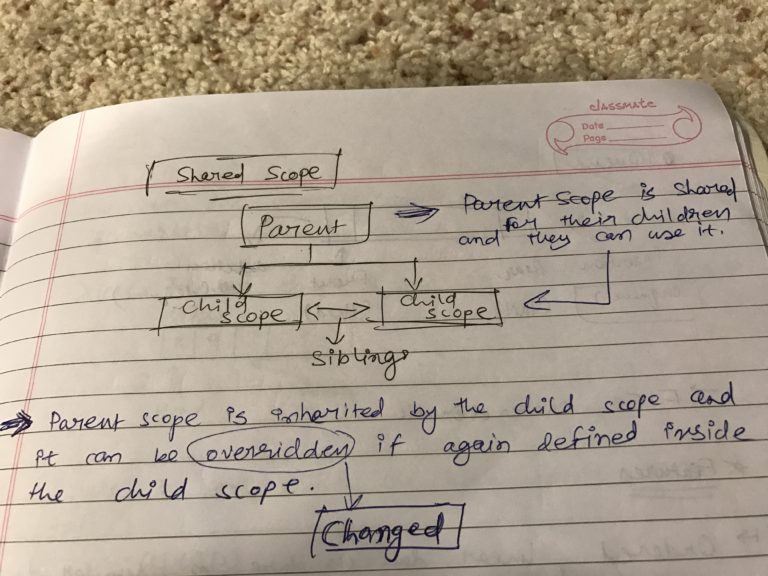 classmate
Date
Page
Shared Scope
Parent
Parent Scope is shared
for their children
and they can use it.
Child
scope
Child
scope
Siblings
Parent scope is inherited by the child scope and
it can be overridden if again defined inside
the child scope.
Changed